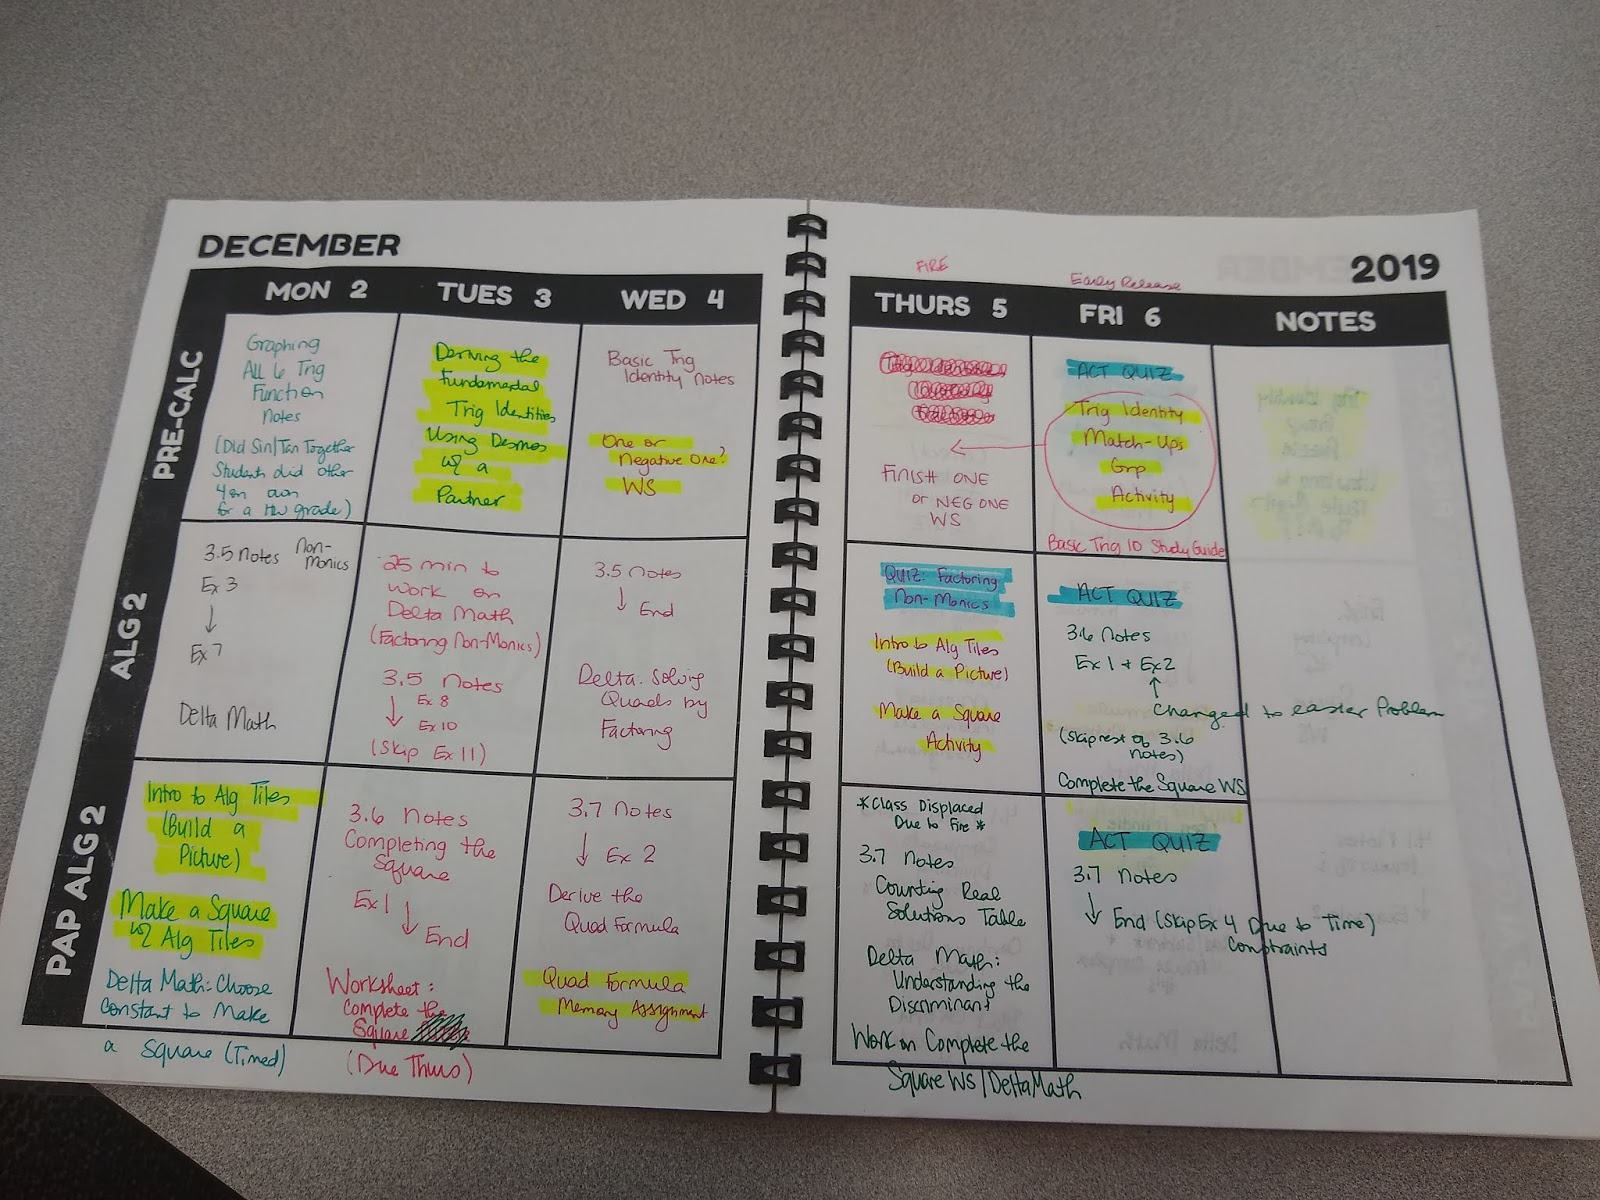 DECEMBER
2019
FIRE
Early Release
MON 2
TUES 3
WED 4
THURS 5
FRI 6
NOTES
PRE-CALC
Graphing
All 6 Trig
Function
Notes
(Did Sin/Tan Together
Student did other
4 on own
for a HW grade)
Deriving the
Fundamental
Trig Identities
Using Desmos
w/ a
Partner
Basic Trig
Identity Notes
One or
Negative One?
WS
FINISH ONE
OR NEG ONE
WS
ACT QUIZ
Trig Identity
Match-Ups
Grp
Activity
Basic Trig ID Study Guide
ALG 2
3.5 Notes Non-
Monics
Ex 3
↓
Ex 7
Delta Math
25 min to
work on
Delta Math
(Factoring Non-Monics)
3.5 Notes
Ex 8
↓
Ex 10
(Skip Ex 11)
3.5 Notes
↓ End
Delta: Solving
Quads by
Factoring
QUIZ: Factoring
Non-Monics
Intro to Alg Tiles
(Build a Picture)
Make a Square
Activity
ACT QUIZ
3.6 Notes
Ex 1 + Ex 2
↑
Changed to easier Problem
(Skip rest of 3.6
Notes)
Complete the Square WS
PAP ALG 2
Intro to Alg Tiles
(Build a
Picture)
Make a Square
w/ Alg Tiles
Delta Math: Choose
Constant to Make
a Square (Timed)
3.6 Notes
Completing the
Square
Ex 1 ↓
End
Worksheet:
Complete the
Square
(Due Thurs)
3.7 Notes
↓ Ex 2
Derive the
Quad Formula
Quad Formula
Memory Assignment
*Class Displaced
Due to Fire*
3.7 Notes
Counting Real
Solutions Table
Delta Math:
Understanding the
Discriminant
Work on Complete the
Square WS/DeltaMath
ACT QUIZ
3.7 Notes
↓ End (Skip Ex 4 Due to Time)
Constraints